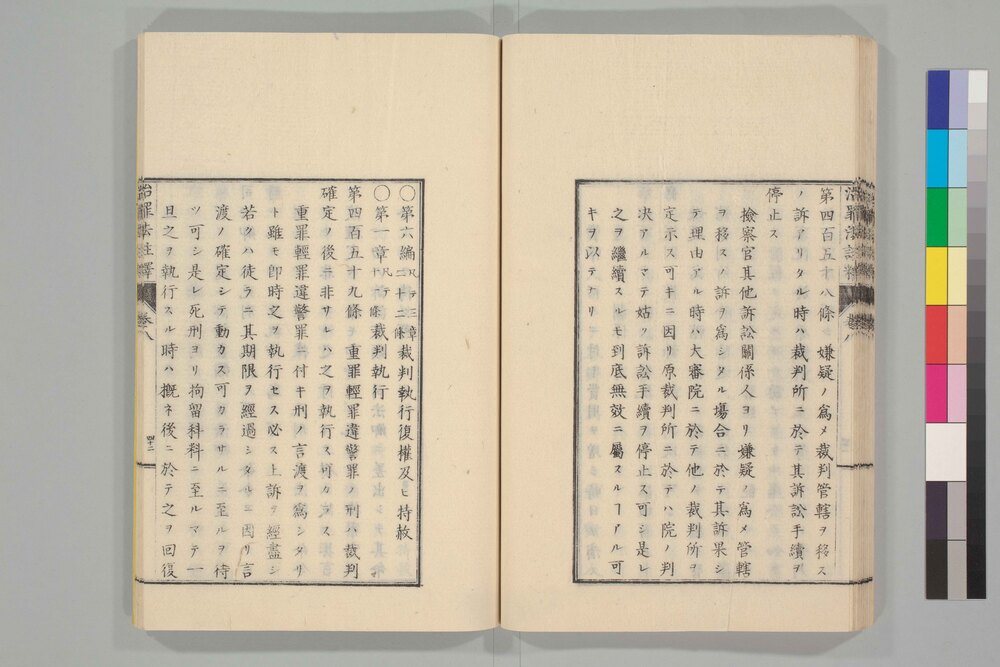 第四百五十八條 嫌疑ノ爲メ裁判管轄ヲ移ス
ノ訴アリタル時ハ裁判所ニ於テ其訴訟手續ヲ
停止ス
撿察官其他訴訟關係人ヨリ嫌疑ノ爲メ管轄
ヲ移スノ訴ヲ爲シタル塲合ニ於テ其訴果シ
テ理由アル時ハ大審院ニ於テ他ノ裁判所ヲ
定示ス可キニ因リ原裁判所ニ於テハ院ノ判
决アルマテ姑ク訴訟手續ヲ停止ス可シ是レ
之ヲ繼續スルモ到底無效ニ屬スルヿアル可
キヲ以テナリ
治罪法註釋 卷八
〇第六編 凡テ三章二十二條 裁判執行復權及ヒ特赦
〇第一章 凡テ 條 裁判執行
第四百五十九條 重罪輕罪違警罪ノ刑ハ裁判
確定ノ後ニ非サレハ之ヲ執行ス可カラス
重罪輕罪違警罪ニ付キ刑ノ言渡ヲ爲シタリ
ト雖モ卽時之ヲ執行セス必ス上訴ヲ經盡シ
若クハ徒ラニ其期限ヲ經過シタルニ因リ言
渡ノ確定シテ動カス可カラサルニ至ルヲ待
ツ可シ是レ死刑ヨリ拘留科料ニ至ルマテ一
旦之ヲ執行スル時ハ概ネ後ニ於テ之ヲ回復
治罪法註釋 卷八